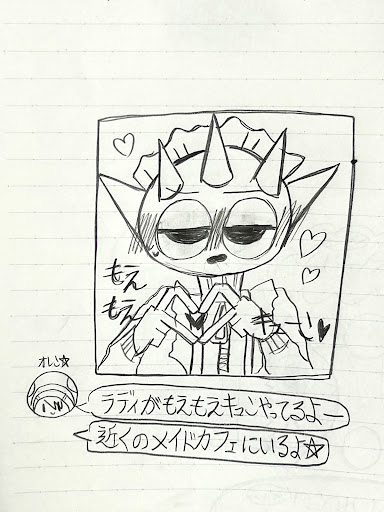 もえ
もえ
キューン♥
オレン☆
ラディがもえもえキュンやってるよー
近くのメイドカフェにいるよ☆